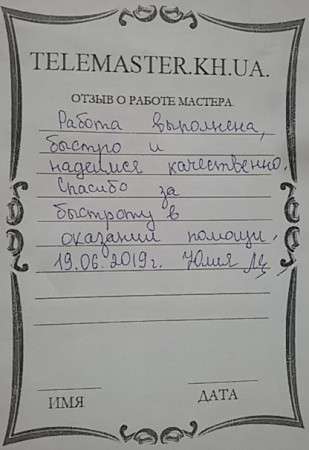 TELEMASTER.KH.UA.
ОТЗЫВ О РАБОТЕ МАСТЕРА
Работа выполнена,
быстро и
надеимся качественно.
Спасибо за
быстроту в
оказании помощи.
19.06.2019г. Юлия
ИМЯ
ДАТА